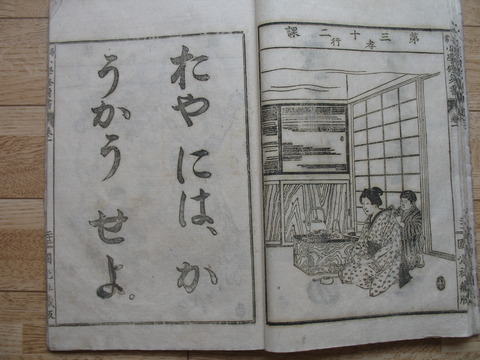 第三十二課
孝行
おやには、か
うかう せよ。